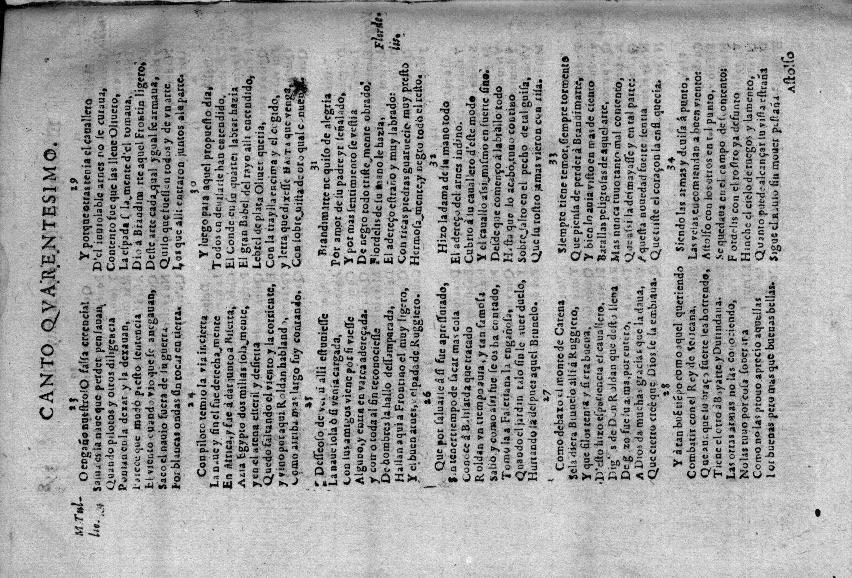 CANTO QVARENTESIMO.
23
O engaño nuestro! O falsa
Salua es la naue que perder pensauan,
Quando pilotos y otros diligencia
Ponian en la dexar, y la dexauan,
Parece que mudò presto sentencia
El viento quando vio que se anegauan,
Saco el nauio fuera de la guerra
Por blancas ondas sin tocar en tierra.
M. Tul-
lio.
24
Con piloto tenio la via incierta
La naue y sin el fue derecha mente
En Africa, y fue à dar junto a Biserta,
Azia Egypto dos millas sola, mente,
y en el arena esteril y desierta
Quedo faltando el viento y la corriente,
y vino por aqui Roldan habland
Como arriba mas largo fuy contando.
25
Desseoso de ver si alli estuuiesse
La naue sola ò si venia cargada,
Con sus amigos viene por si viesse
Alguno, y entra en varca adereçada.
y como toda al fin reconociesse
De hombres la hallo desamparada,
Hallan aqui a Frontino el muy ligero,
Y el buen arnes, y espada de Ruggiero.
26
Que por saluarse à si fue apressurado,
Sin tener tiempo de sacar mas cosa
Conoce à Balisarda que tratado
Roldan vn tiempo auia, y tan famosa
Salio, y como assi fue se os ha contado,
Tomola a Falerina la engañosa,
Quando el jardin talo sin le auer duelo,
Hurtandola despues aquel Brunelo.
27
Como debaxo el monte de Carena
Se la diera Brunelo alli à Ruggiero,
Y que filos tenia y firta buena,
D'esto hizo experiencia el cauallero,
Dig' os de Don Roldan que desto llena
De gozo fue su alma, por entero,
A Dios da muchas gracias que la daua,
Que cierto creè que Dios se la embiaua.
28
Y à tan buē tiēpo como aquel queriendo
Combatir con el Rey de Sericana,
Que aun que su braço fuerte sea horrendo,
Tiene el otro à Bayarte, y Durindana.
Las otras armas no las conosciendo,
No las tuuo por cosa soberana
Como no las prouo aprecio aquellas
Por buenas pero mas que buenas bellas.
29
Y porque estas tenia el cauallero
D'el admirable arnes no le curaua,
Contento fue que las lleue Oliuero,
La espada si la mente d'el tomaua,
Dio à Brandimarte aquel Frontin ligero,
Deste arte cada qual ygual se armaua,
Quiso que fuessen tomas y de vn arte
Los que alli entraron juntos a la parte.
30
Y luego para aquel propuesto dia,
Todos en deuisarse han entendido,
El Conde en su quartel labrar hazia
El gran Babel del rayo alli encendido,
Lebrel de plata Oliuer queria,
Con la traylla encima y el cogido,
y letra que dixesse Hasta que venga,
Con sobreuista de oro qual conuenga.
31
Brandimarte ne quiso de alegria
Por amor de su padre yr señalado,
Y por mas sentimiento se vestia
De negro todo triste, mente obrado,
Flordelis de su mano le hazia,
El adereço estraño y muy labrado:
Con ricas piedras guarnecele muy presto
Hermosa, mente y negro todo el resto.
Florde-
lis.
32
Hizo la dama de la mano todo
El adereço del arnes indino,
Cubrio à su cauallero d'este modo
Y el cauallo assi, mismo en suerte fino.
Desde que començo à labrallo todo
Hasta que lo acabo, tuuo contino
Sobresalto en el pecho de tal guisa,
Que su rostro jamas vieron con risa.
33
Siempre tiene temor, siempre tormento
Que piensa de perder à Brandimarte,
Y bien le auia visto en mas de ciento
Batallas peligrosas de aquel arte,
Mas nunca tuuo tanto mal contento,
Que assi la desmayasse y en tal parte:
Aquesta nouedad fuerte sentia
Que triste el coraçon la enfl aquecia.
34
Siendo las armas y diuisa à punto,
Las velas encomiendan a buen viento:
Astolfo con los otros en tal punto,
Se quedaua en el campo de contentos
Flordelis con el rostro ya defunto
Hinche el cielo de ruegos y lamento,
Quanto puede alcançar su vista estraña
Sigue el nauio sin mouer pestaña.
Astolfo